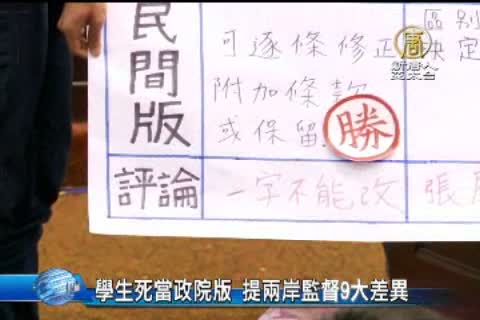 民間版
可逐條修正
附加條款
或保留
勝
區別
決定
評論
一字不能改
張
新唐人
亞太台
學生死當政院版 提兩岸監督9大差異